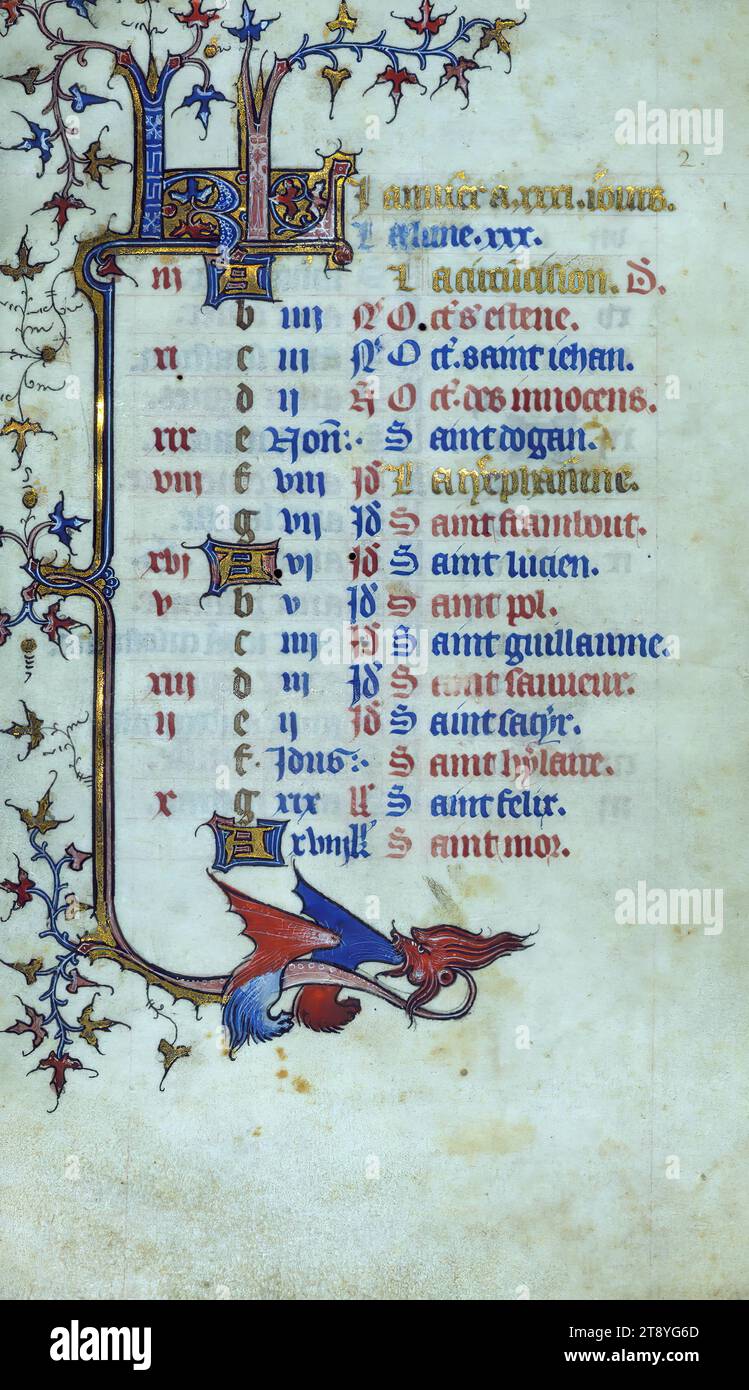 2
KL Januier a .xxxi. iours.
La lune .xxx.
iij A La circūcision. D.
b iiij N° Oct̄. s' estene.
xi c iij N° Oct̄. saint iehan.
d ij N Oct̄. des innocens.
xix e Non̄: Saint dogan.
viij f viij Id La typhanie.
g vij Id Saint frambout.
xvj A vj Id Saint lucien.
v b v Id Saint pol.
c iiij Id Saint guillaume.
xiij d iij Id Saint sauueur.
ij e ij Id Saint satyr.
f. Idus: Saint hylaire.
x g xix kl Saint felix.
A xviij kł Saint mor.
alamy
alamy
alamy
alamy
Image ID: 2T8YG6D
www.alamy.com